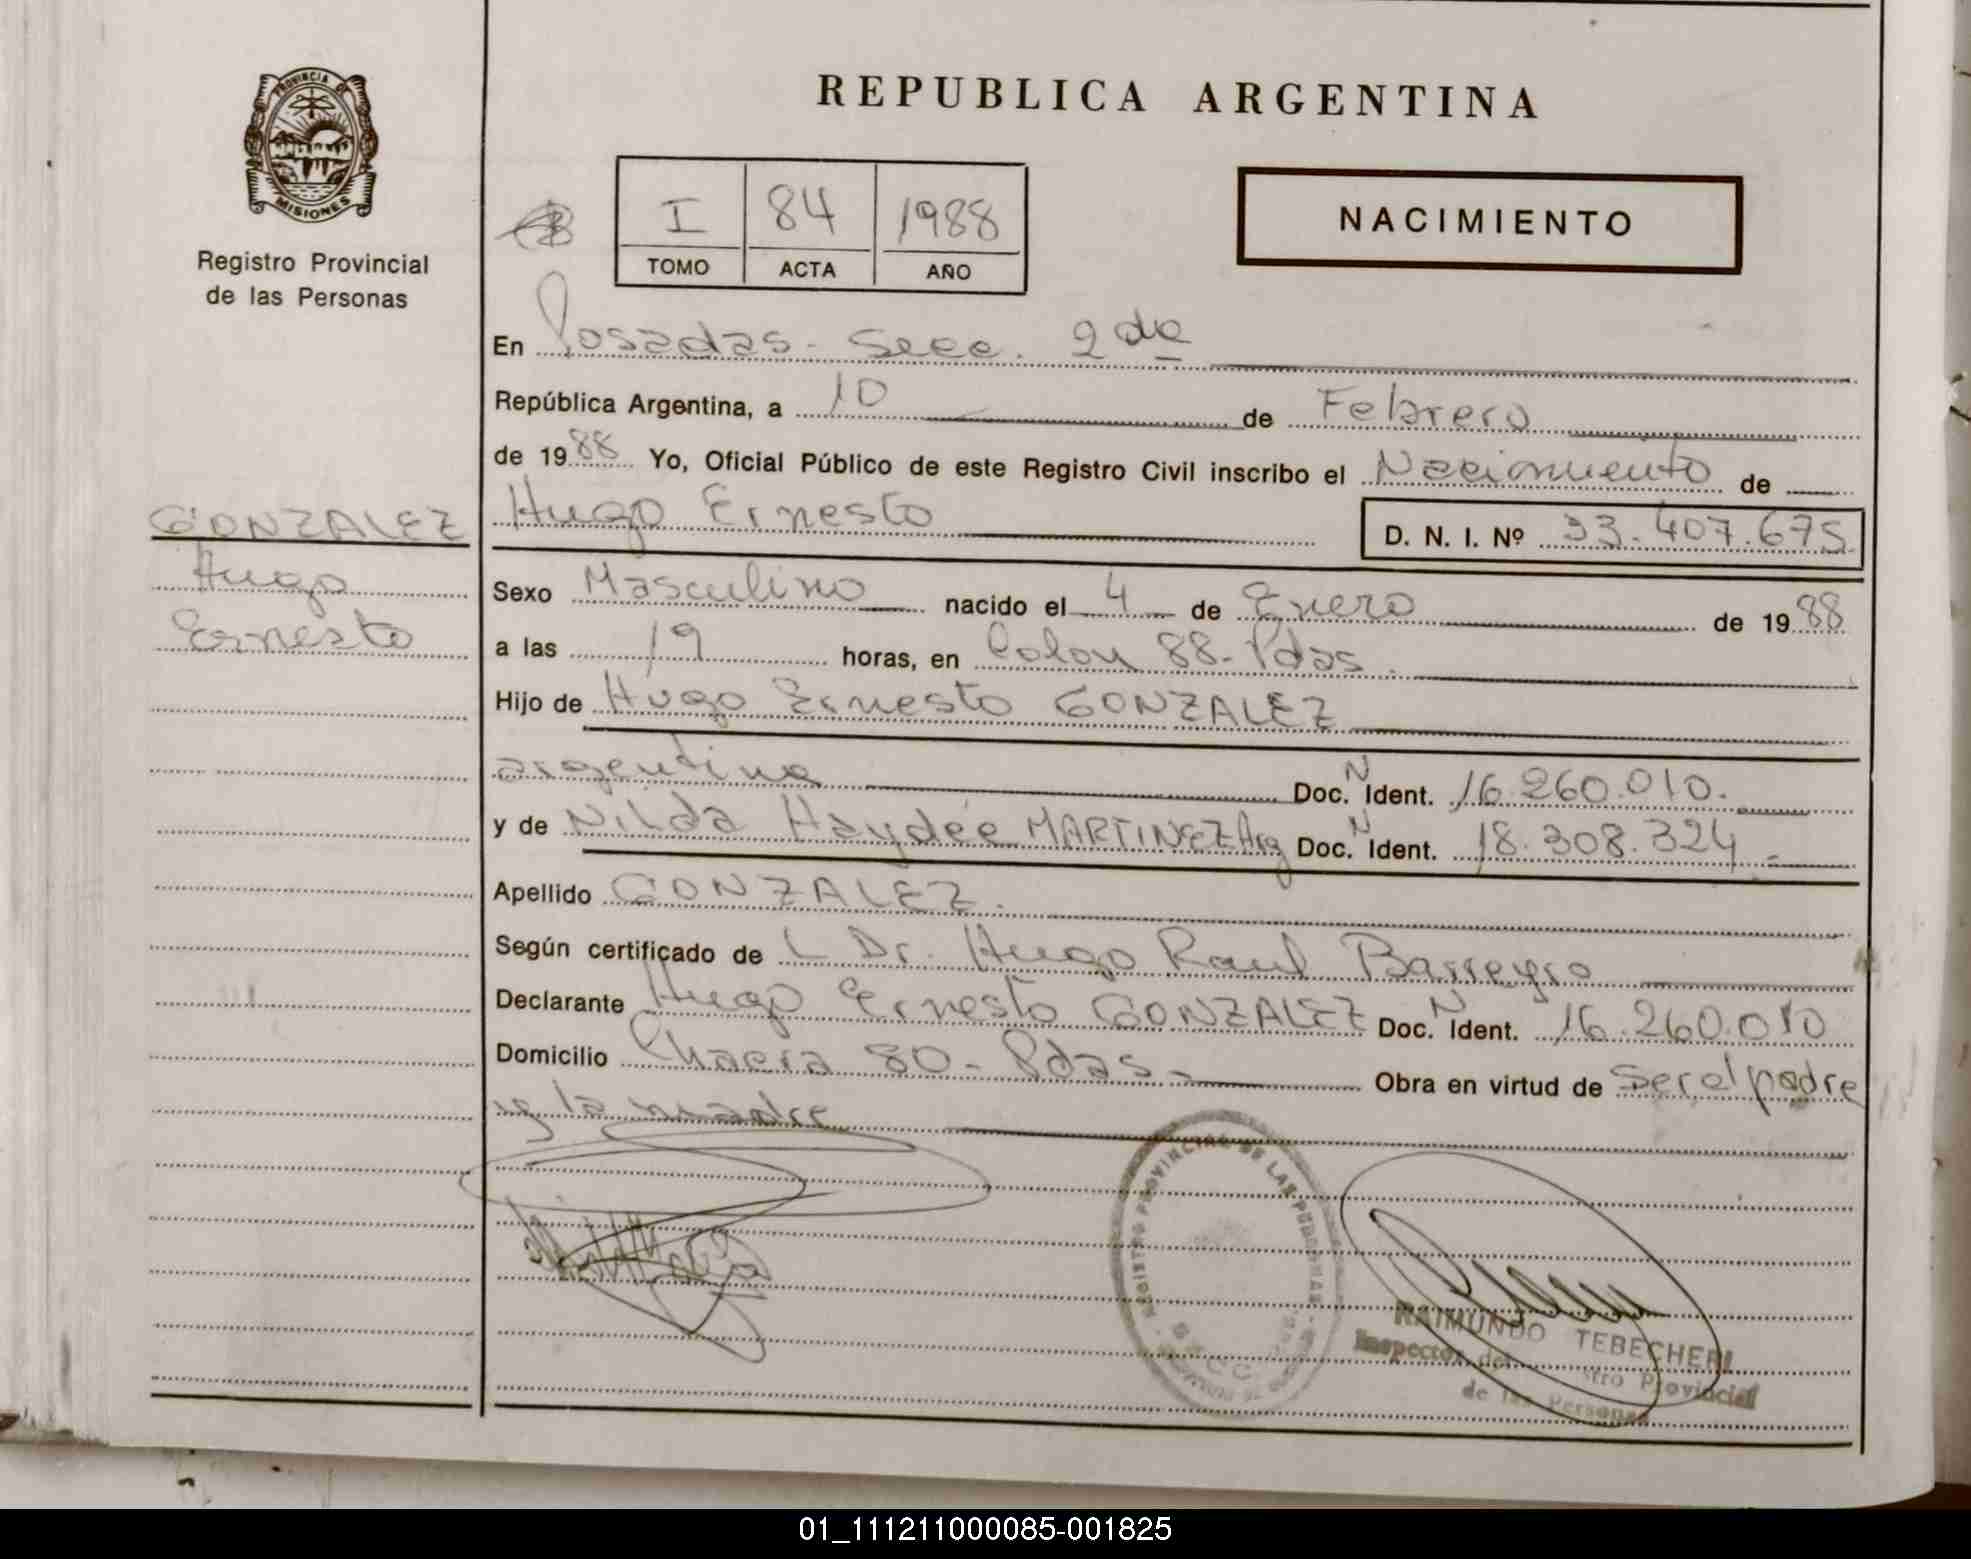 PROVINCIA DE
MISIONES
Registro Provincial
de las Personas
GONZALEZ
Hugo
Ernesto
REPUBLICA ARGENTINA
I 84 1988
TOMO ACTA AÑO
NACIMIENTO
En Posadas - Secc. 2da
República Argentina, a 10 de Febrero
de 1988 Yo, Oficial Público de este Registro Civil inscribo el Nacimiento de
Hugo Ernesto D. N. I. Nº 33.407.675
Sexo Masculino nacido el 4 de Enero de 1988
a las 19 horas, en Colon 88 - Pdas.
Hijo de Hugo Ernesto GONZALEZ
argentino Doc. N Ident. 16.260.010.
y de Nilda Haydée MARTINEZ Arg Doc. N Ident. 18.308.324
Apellido GONZALEZ.
Según certificado de L Dr. Hugo Raul Barreyro
Declarante Hugo Ernesto GONZALEZ Doc. N Ident. 16.260.010
Domicilio Chacra 80 - Pdas. Obra en virtud de ser el padre
y la madre
REGISTRO PROVINCIAL DE LAS PERSONAS
RAIMUNDO TEBECHERI
Inspector del stro Provincial
de las Personas
01_111211000085-001825